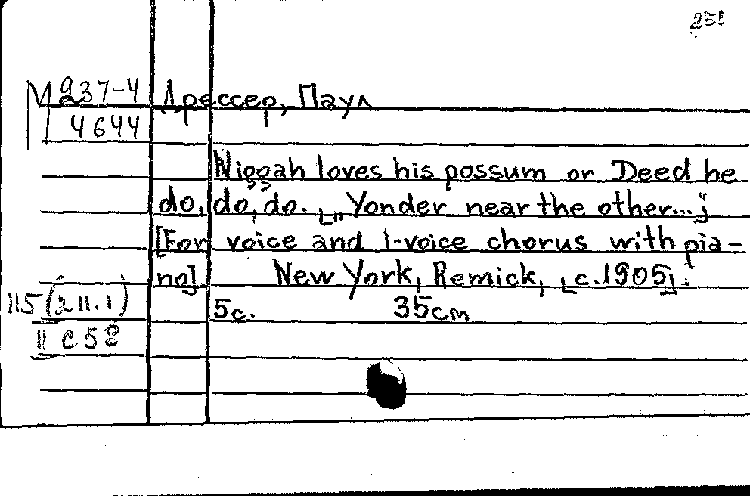 М 237-4
4644
Дрессер, Паул
Niggah loves his possum or Deed he
do, do, do. [„Yonder near the other..."]
[For voice and 1-voice chorus with pia-
no]. New York, Remick, [c.1905].
5c. 35cm
115(211.1)
11 c 52